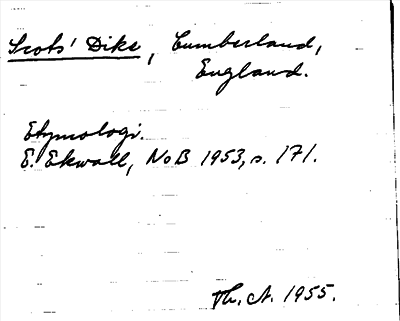 Scots' Dike, Cumberland,
England.
Etymologi.
E. Ekwall, NoB 1953, s. 171.
Th. A. 1955.